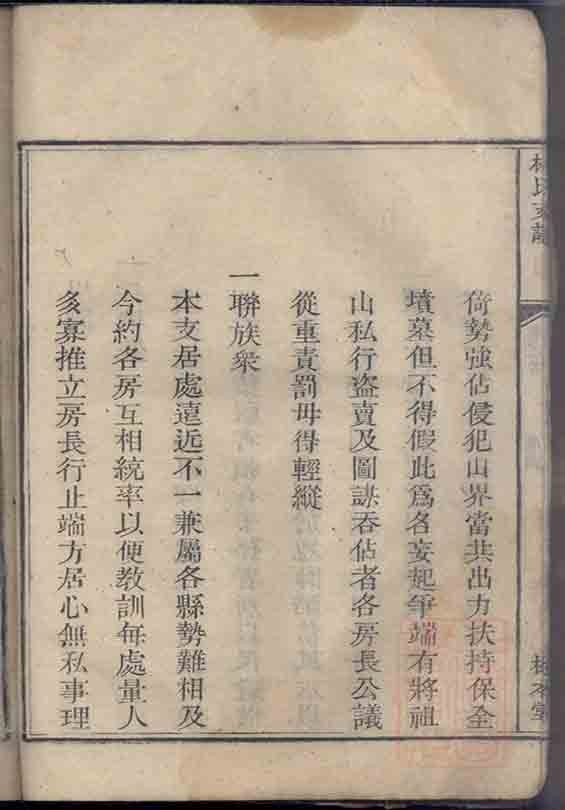 倚勢強佔侵犯山界當共出力扶持保全
墳墓但不得假此爲名妄起爭端有將祖
山私行盜賣及圖謀吞佔者各房長公議
從重責罰毋得輕縱
一聯族衆
本支居處遠近不一兼屬各縣勢難相及
今約各房互相統率以便教訓每處量人
多寡推立房長行止端方居心無私事理